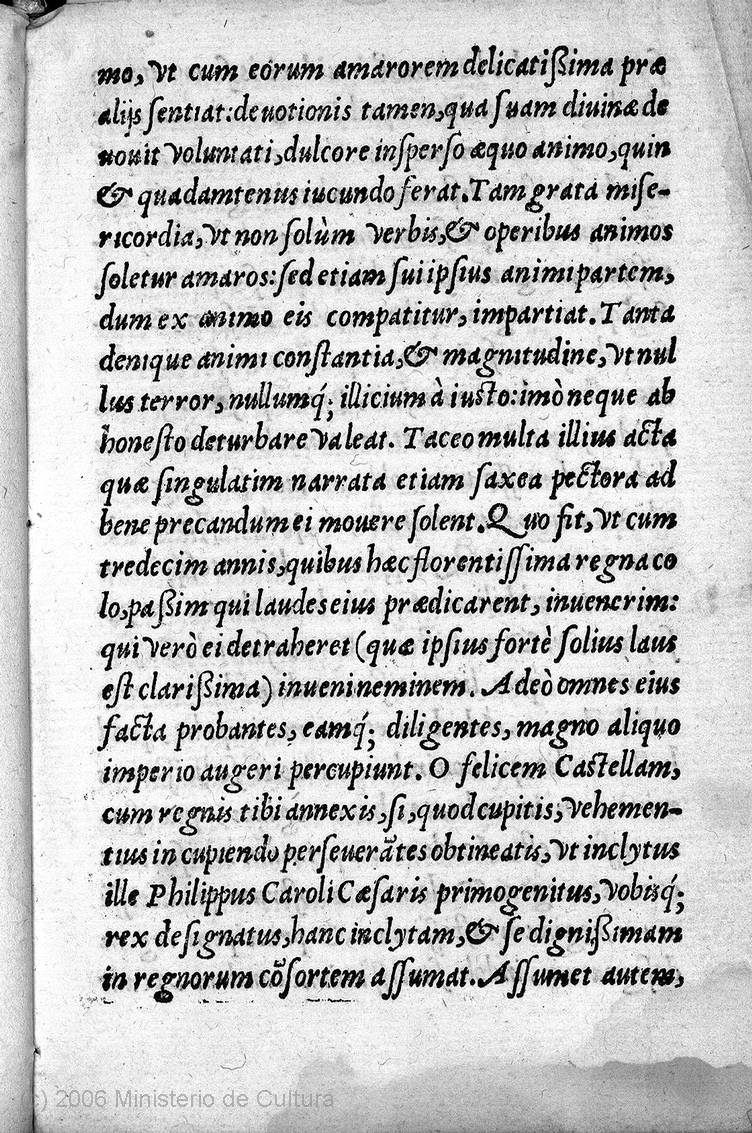 mo, vt cum eorum amarorem delicatißima præ
alijs sentiat: deuotionis tamen, qua suam diuinæ de
uouit voluntati, dulcore insperso æquo animo, quin
& quadamtenus iucundo ferat. Tam grata mise-
ricordia, vt non solùm verbis, & operibus animos
soletur amaros: sed etiam sui ipsius animi partem,
dum ex animo eis compatitur, impartiat. Tanta
denique animi constantia, & magnitudine, vt nul
lus terror, nullumq́; illicium à iusto: imò neque ab
honesto deturbare valeat. Taceo multa illius acta
quæ singulatim narrata etiam saxea pectora ad
bene precandum ei mouere solent. Quo fit, vt cum
tredecim annis, quibus hæc florentissima regna co
lo, paßim qui laudes eius prædicarent, inuenerim:
qui verò ei detraheret (quæ ipsius fortè solius laus
est clarißima) inueni neminem. Adeò omnes eius
facta probantes, eamq́; diligentes, magno aliquo
imperio augeri percupiunt. O felicem Castellam,
cum regnis tibi annexis, si, quod cupitis, vehemen-
tius in cupiendo perseuerātes obtineatis, vt inclytus
ille Philippus Caroli Cæsaris primogenitus, vobisq́;
rex designatus, hanc inclytam, & se dignißimam
in regnorum cōsortem assumat. Assumet autem,
(c) 2006 Ministerio de Cultura